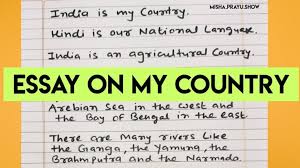 MISHA.PRAYU.SHOW
India is my Country.
Hindi is our National Language.
India is an agricultural Country.
ESSAY ON MY COUNTRY
Arebian Sea in the west and
the Bay of Bengal in the east.
There are many rivers like
the Ganga, the Yamuna, the
Brahmputra and the Narmada.